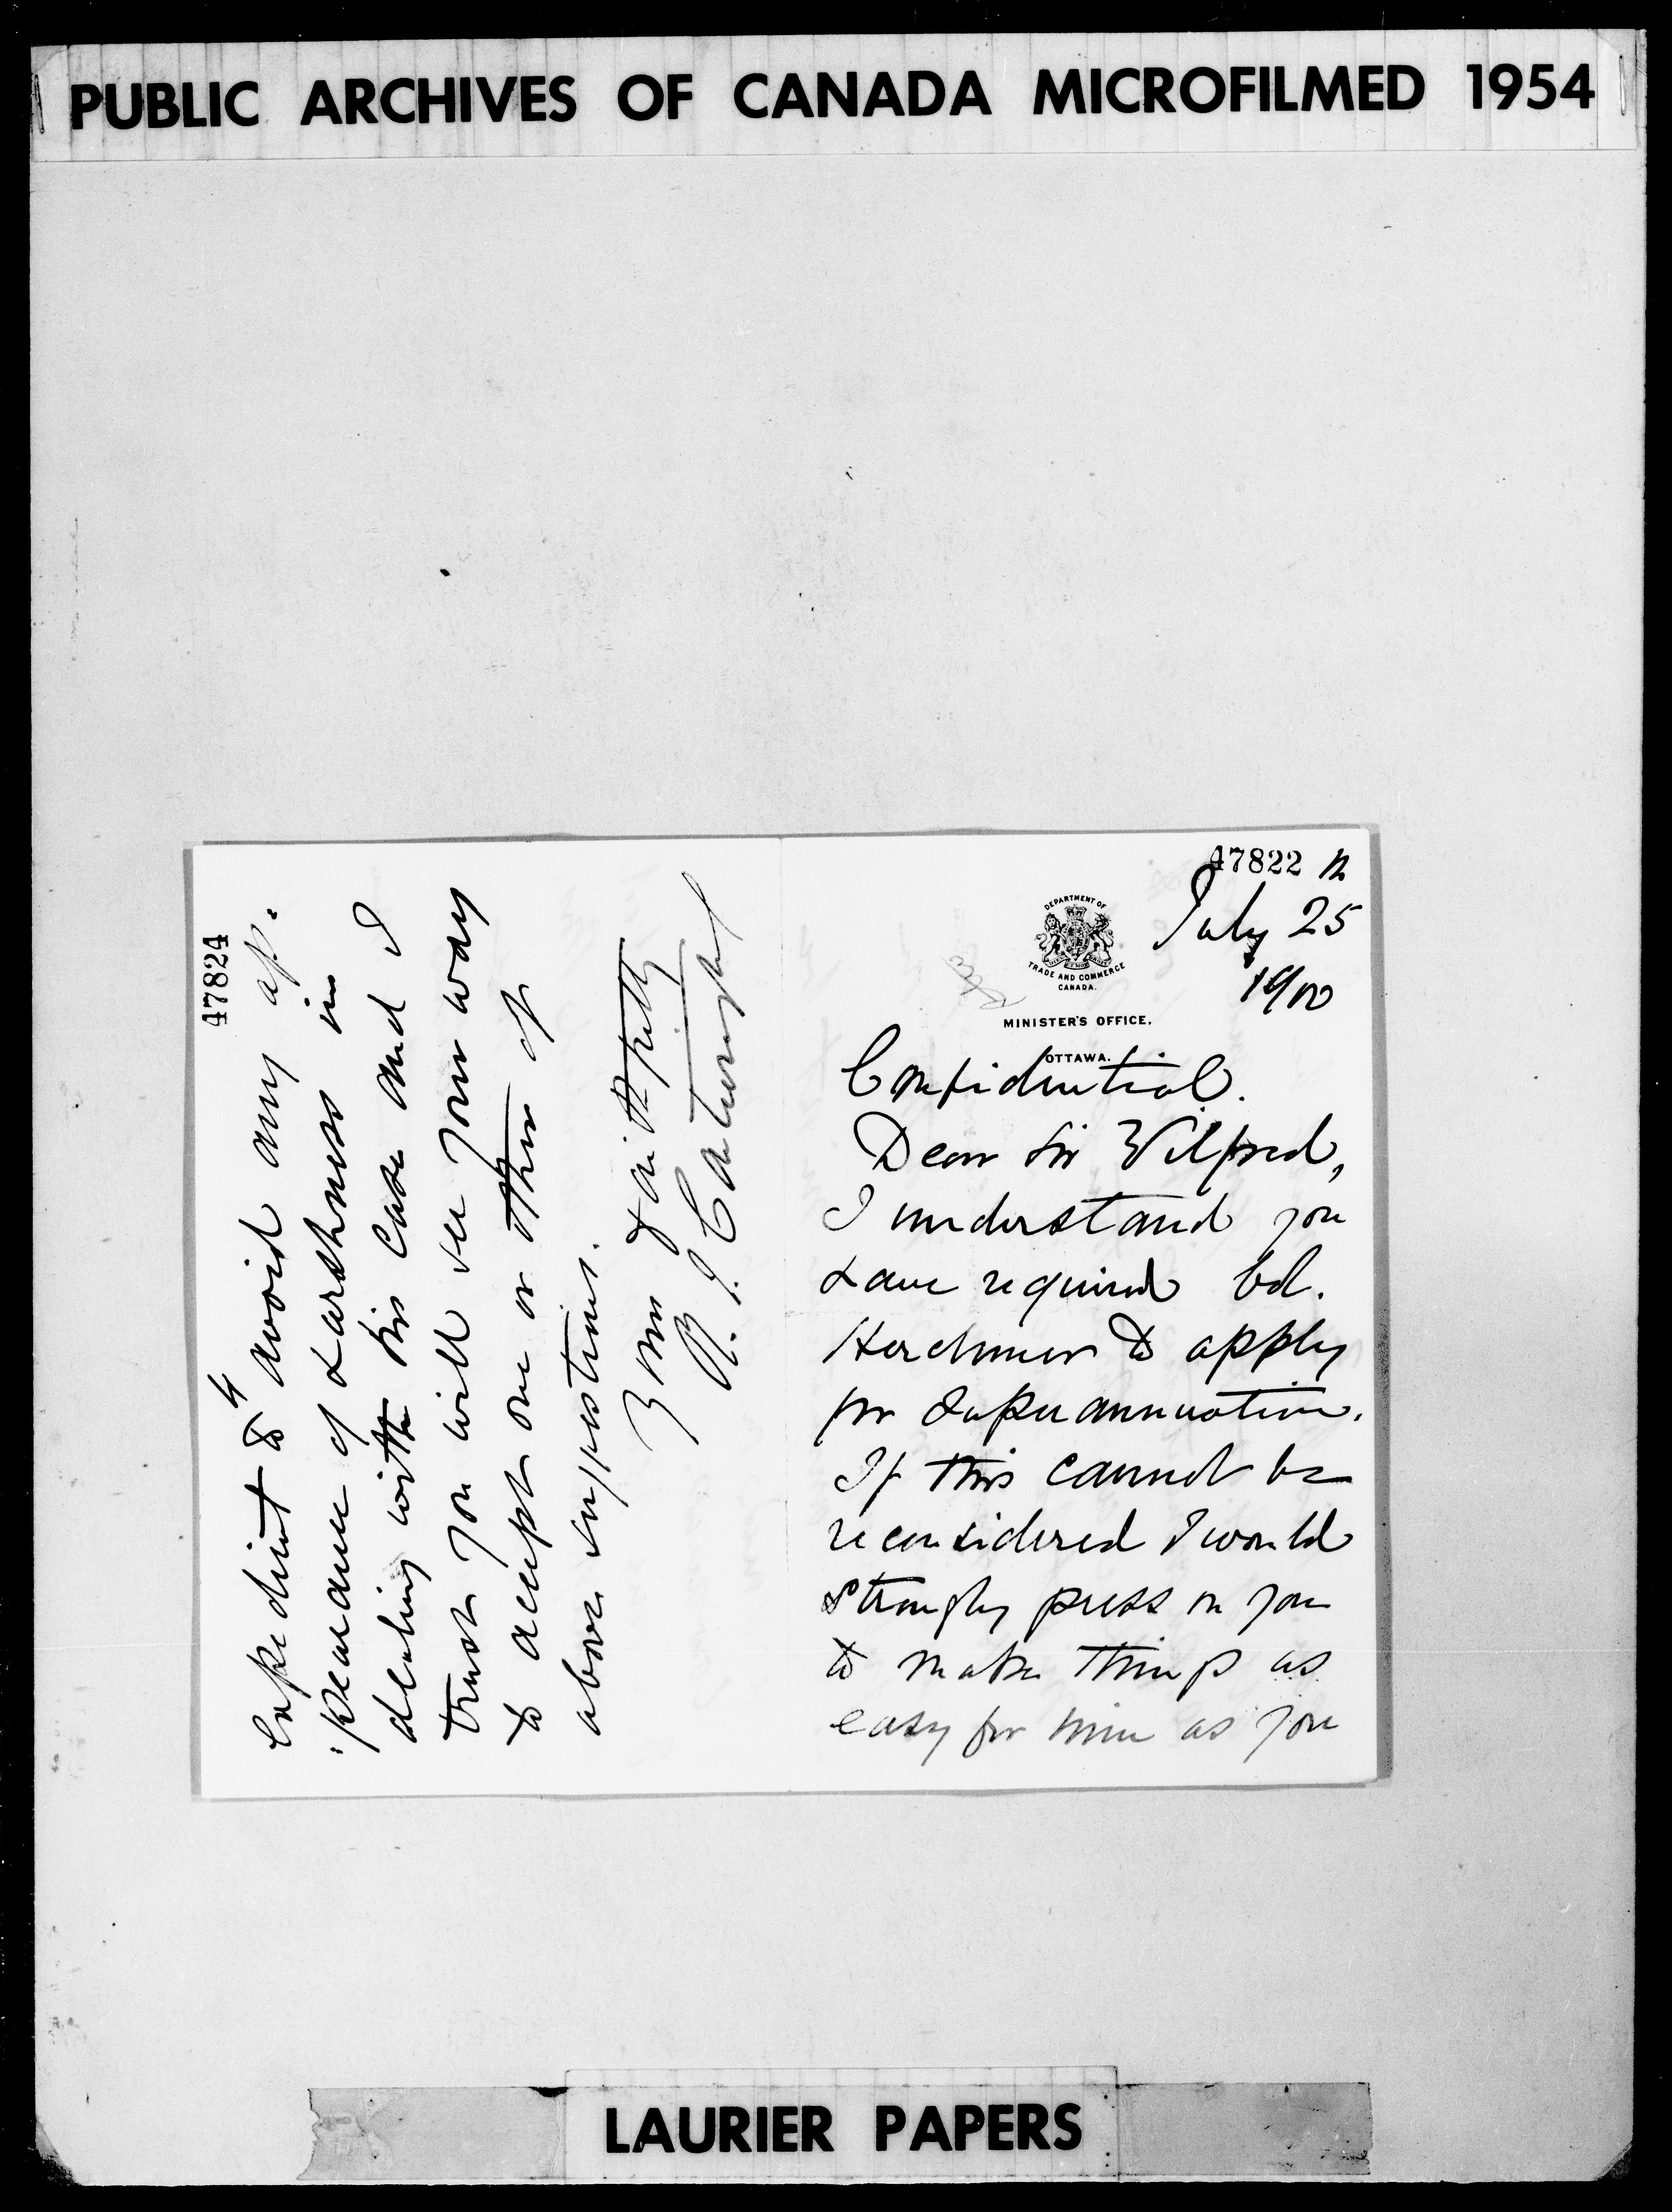 PUBLIC ARCHIVES OF CANADA MICROFILMED 1954
47822
July 25
1900
DEPARTMENT OF
TRADE AND COMMERCE
CANADA.
MINISTER'S OFFICE.
OTTAWA.
Confidential.
Dear Sir Wilfred,
I understand you
have required Col.
Herchmer to apply
for Superannuation.
If this cannot be
reconsidered I would
strongly press on you
to make things as
easy for him as you
47824
4
expedient to avoid any ap-
pearance of harshness in
dealing with his case and I
trust you will see your way
to accept one or other of
above suggestions.
Yrs faithfully
R. J. Cartwright
LAURIER PAPERS